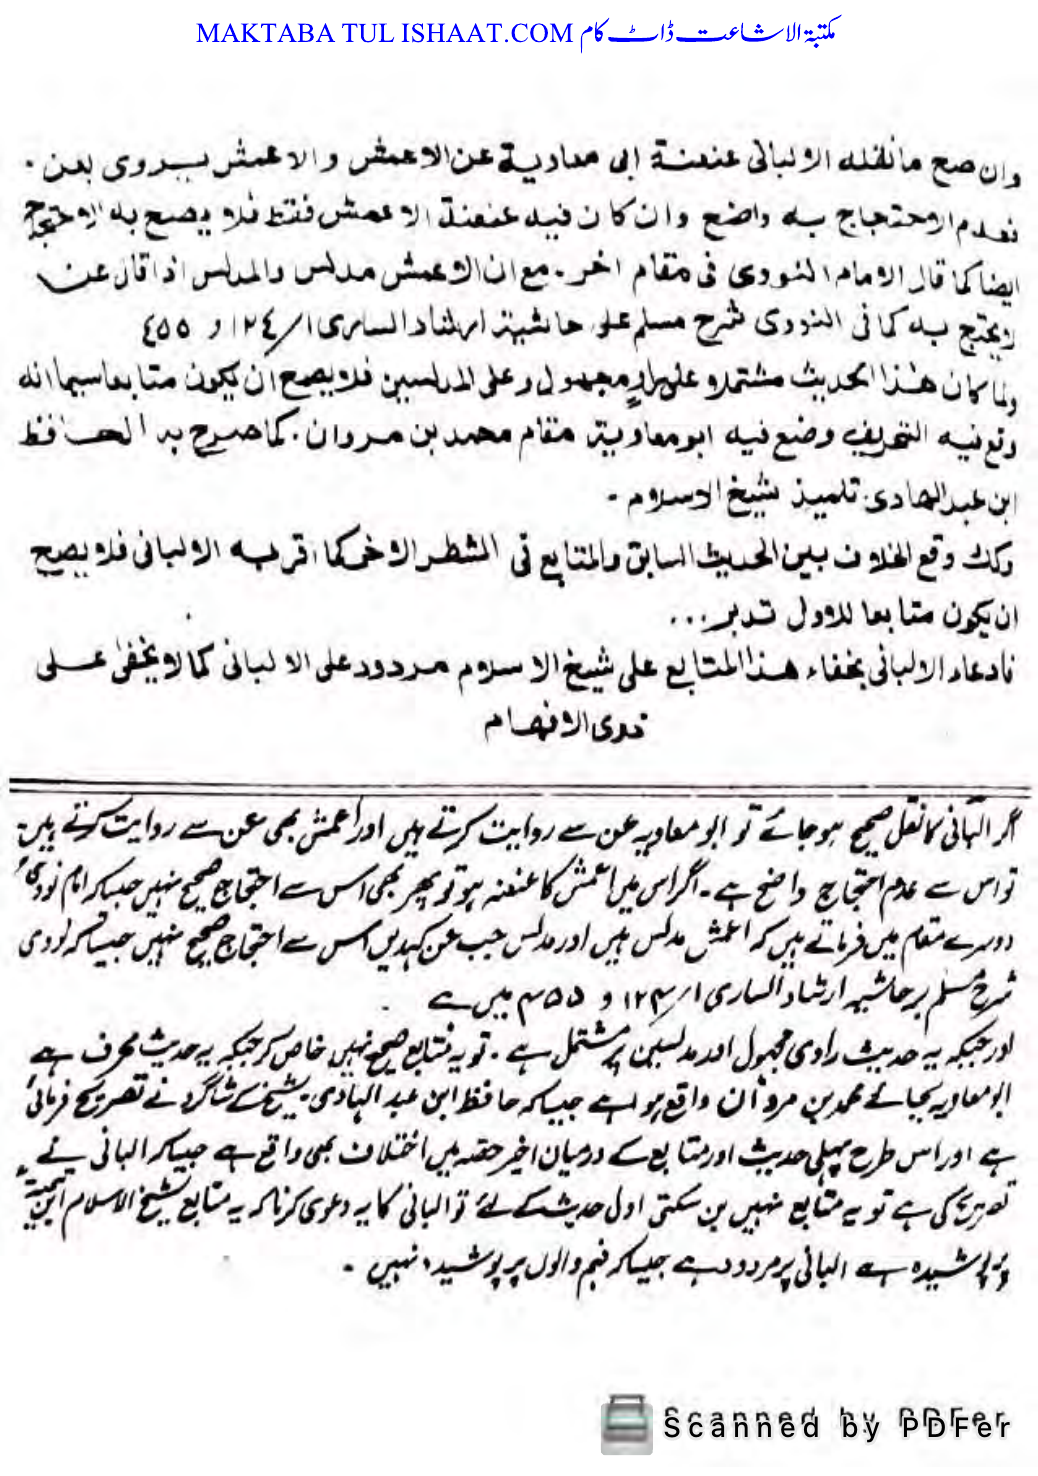 MAKTABA TUL ISHAAT.COM مکتبۃ الاشاعت ڈاٹ کام
وان صح ما نقله الالبانی عنعنة ابی معاویة عن الاعمش والاعمش یروی بعن .
فعدم الاحتجاج به واضح وان کان فیه عنعنة الاعمش فقط فلا یصح به الاحتجاج
ایضا کما قال الامام النووی فی مقام اخر . مع ان الاعمش مدلس والمدلس اذا قال عن
لا یحتج به کما فی النووی شرح مسلم علی حاشیة ارشاد الساری ۱/۱۲٤ و ٤٥٥
ولما کان هذا الحدیث مشتملا علی راوٍ مجهول وعلی المدلسین فلا یصح ان یکون متابعا سیما انه
وقع فیه التحریف وضع فیه ابو معاویة مقام محمد بن مروان . کما صرح به الحافظ
ابن عبد الهادی تلمیذ شیخ الاسلام -
وکذا وقع الخلاف بین الحدیث السابق والمتابع فی الشطر الاخر کما اقر به الالبانی فلا یصح
ان یکون متابعا للاول تدبر...
فادعاء الالبانی بخفاء هذا المتابع علی شیخ الاسلام مردود علی الالبانی کما لا یخفیٰ علی
ذوی الافهام
اگر البانی کا نقل صحیح ہو جائے تو ابو معاویہ عن سے روایت کرتے ہیں اور اعمش بھی عن سے روایت کرتے ہیں۔
تو اس سے عدم احتجاج واضح ہے۔ اگر اس میں اعمش کا عنعنہ ہو تو پھر بھی اس سے احتجاج صحیح نہیں جیسا کہ امام نوویؒ
دوسرے مقام میں فرماتے ہیں کہ اعمش مدلس ہیں اور مدلس جب عن کہدیں اس سے احتجاج صحیح نہیں جیسا کہ نووی
شرح مسلم بر حاشیہ ارشاد الساری ۱/۱۲۴ و ۴۵۵ میں ہے
اور جبکہ یہ حدیث راوی مجہول اور مدلسین پر مشتمل ہے۔ تو یہ متابع صحیح نہیں خاص کر جبکہ یہ حدیث محرف ہے
ابو معاویہ بجائے محمد بن مروان واقع ہوا ہے جیسا کہ حافظ ابن عبد الہادی۔ شیخ کے شاگرد نے تصریح فرمائی
ہے اور اس طرح پہلی حدیث اور متابع کے درمیان اخیر حصہ میں اختلاف بھی واقع ہے جیسا کہ البانی نے
تصریح کی ہے تو یہ متابع نہیں بن سکتی اول حدیث کے لئے تو البانی کا یہ دعوی کرنا کہ یہ متابع شیخ الاسلام ابن تیمیہؒ
پر پوشیدہ ہے البانی پر مردود ہے جیسا کہ فہم والوں پر پوشیدہ نہیں ۔
Scanned by PDFer